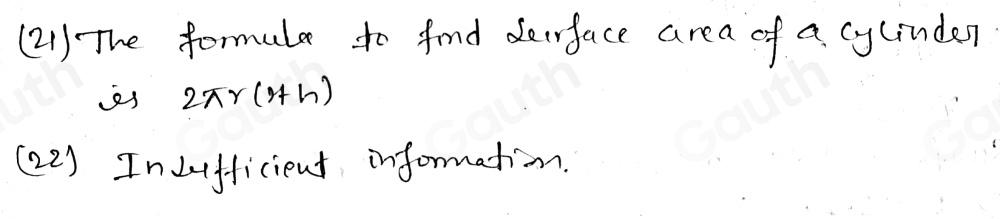 (21) The formula to find surface area of a cylinder
is 2πr(r+h)
(22) Insufficient information.